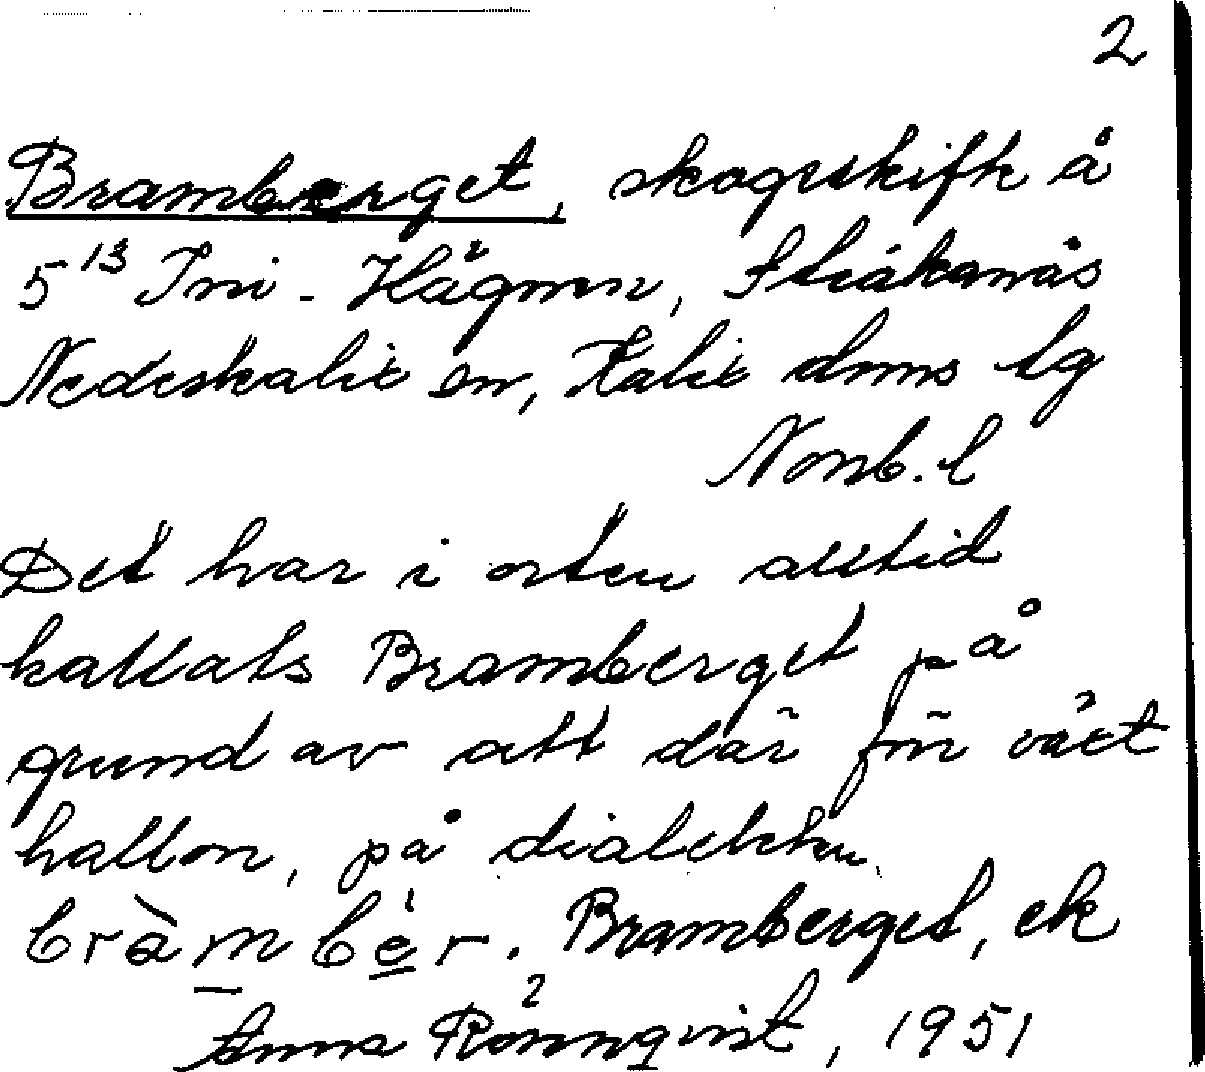 2
Bramberget, skogsskifte å
5¹³ Inri-Hägnen, Stråkanäs
Nederkalix sn, Kalix dmns lg
Norrb. l
Det har i orten alltid
kallats Bramberget på
grund av att där förr växt
hallon, på dialekten
bràmbèr. Bramberget, ek
Anna Rönnqvist, 1951